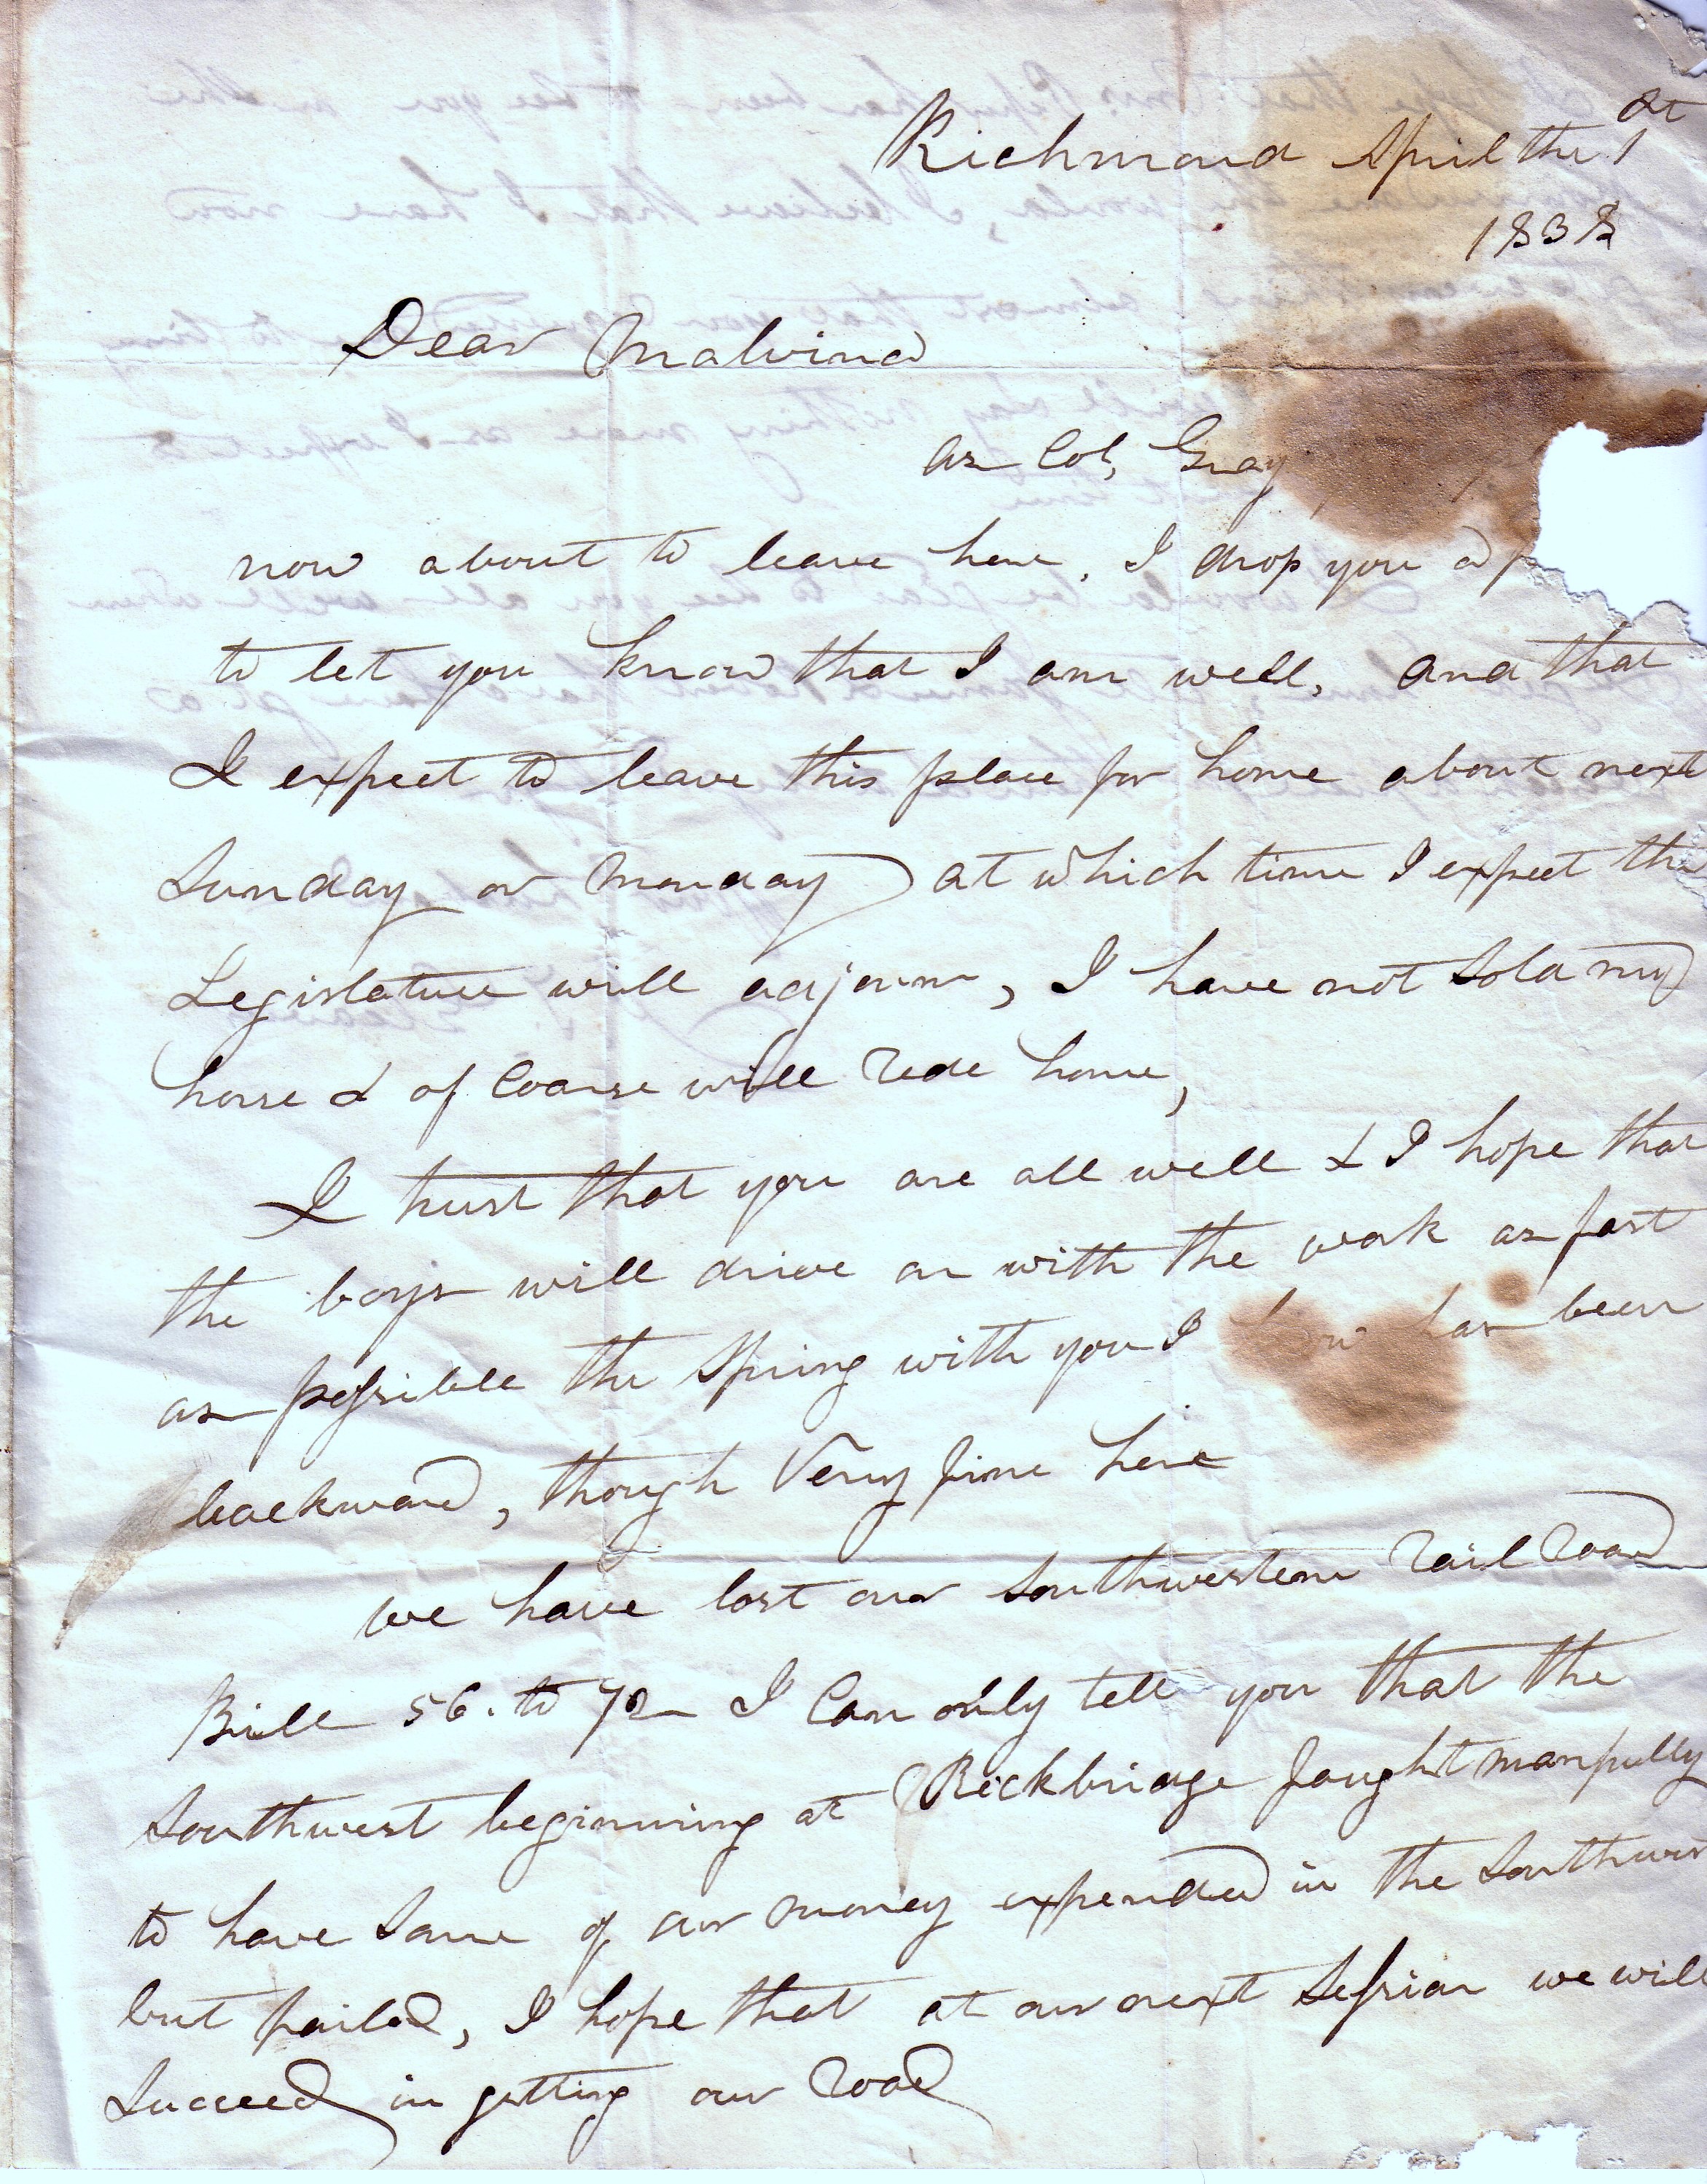 Richmond April the 1st
1838
Dear Malvina
as Col, Gray
now about to leave here, I drop you a
to let you know that I am well, and that
I expect to leave this place for home about next
Sunday or Monday at which time I expect the
Legislature will adjourn, I have not sold my
horse & of Coarse will Ride home,
I trust that you are all well & I hope that
the boys will drive on with the work as fast
as possible the Spring with you I know has been
backward, though Very fine here
we have lost our Southwestern Rail Road
Bill 56. to 72 I Can only tell you that the
Southwest beginning at Rockbridge fought manfully
to have Some of our money expended in the Southwest
but failed, I hope that at our next Session we will
Succeed in getting our Road